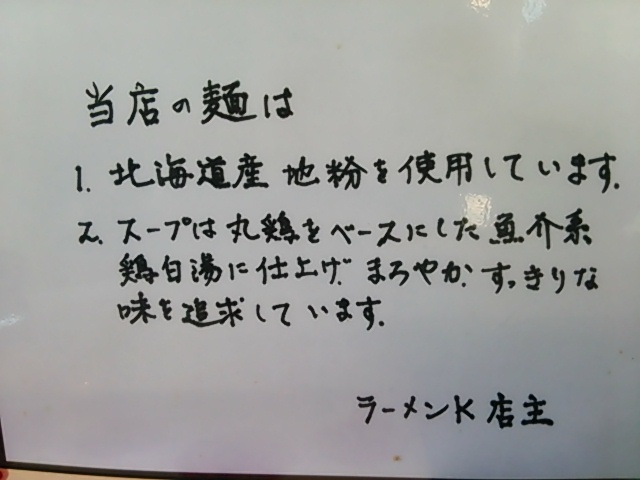 当店の麺は
1. 北海道産 地粉を使用しています.
2. スープは丸鶏をベースにした魚介系
鶏白湯に仕上げ. まろやか. すっきりな
味を追求しています.
ラーメンK 店主